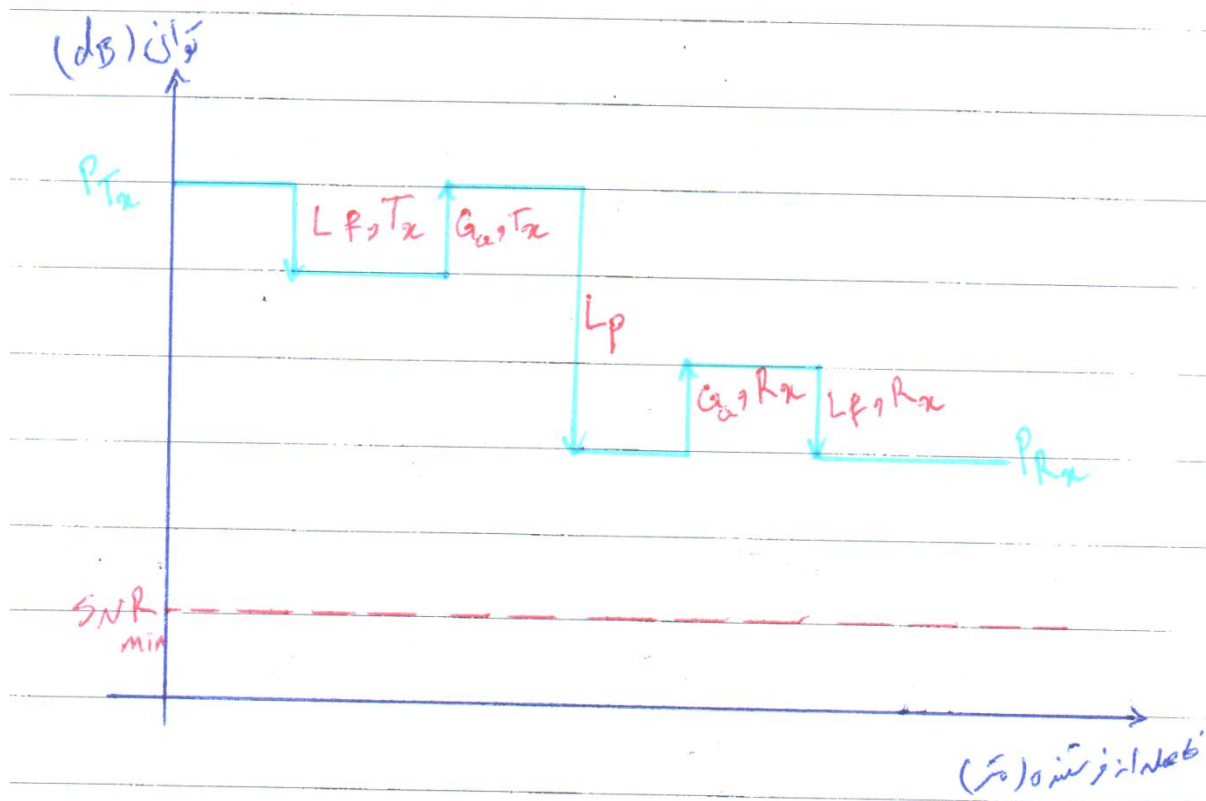 توان (dB)
P_Tx
L_f,Tx
G_a,Tx
L_p
G_a,Rx
L_f,Rx
P_Rx
SNR_min
فاصله از فرستنده (متر)